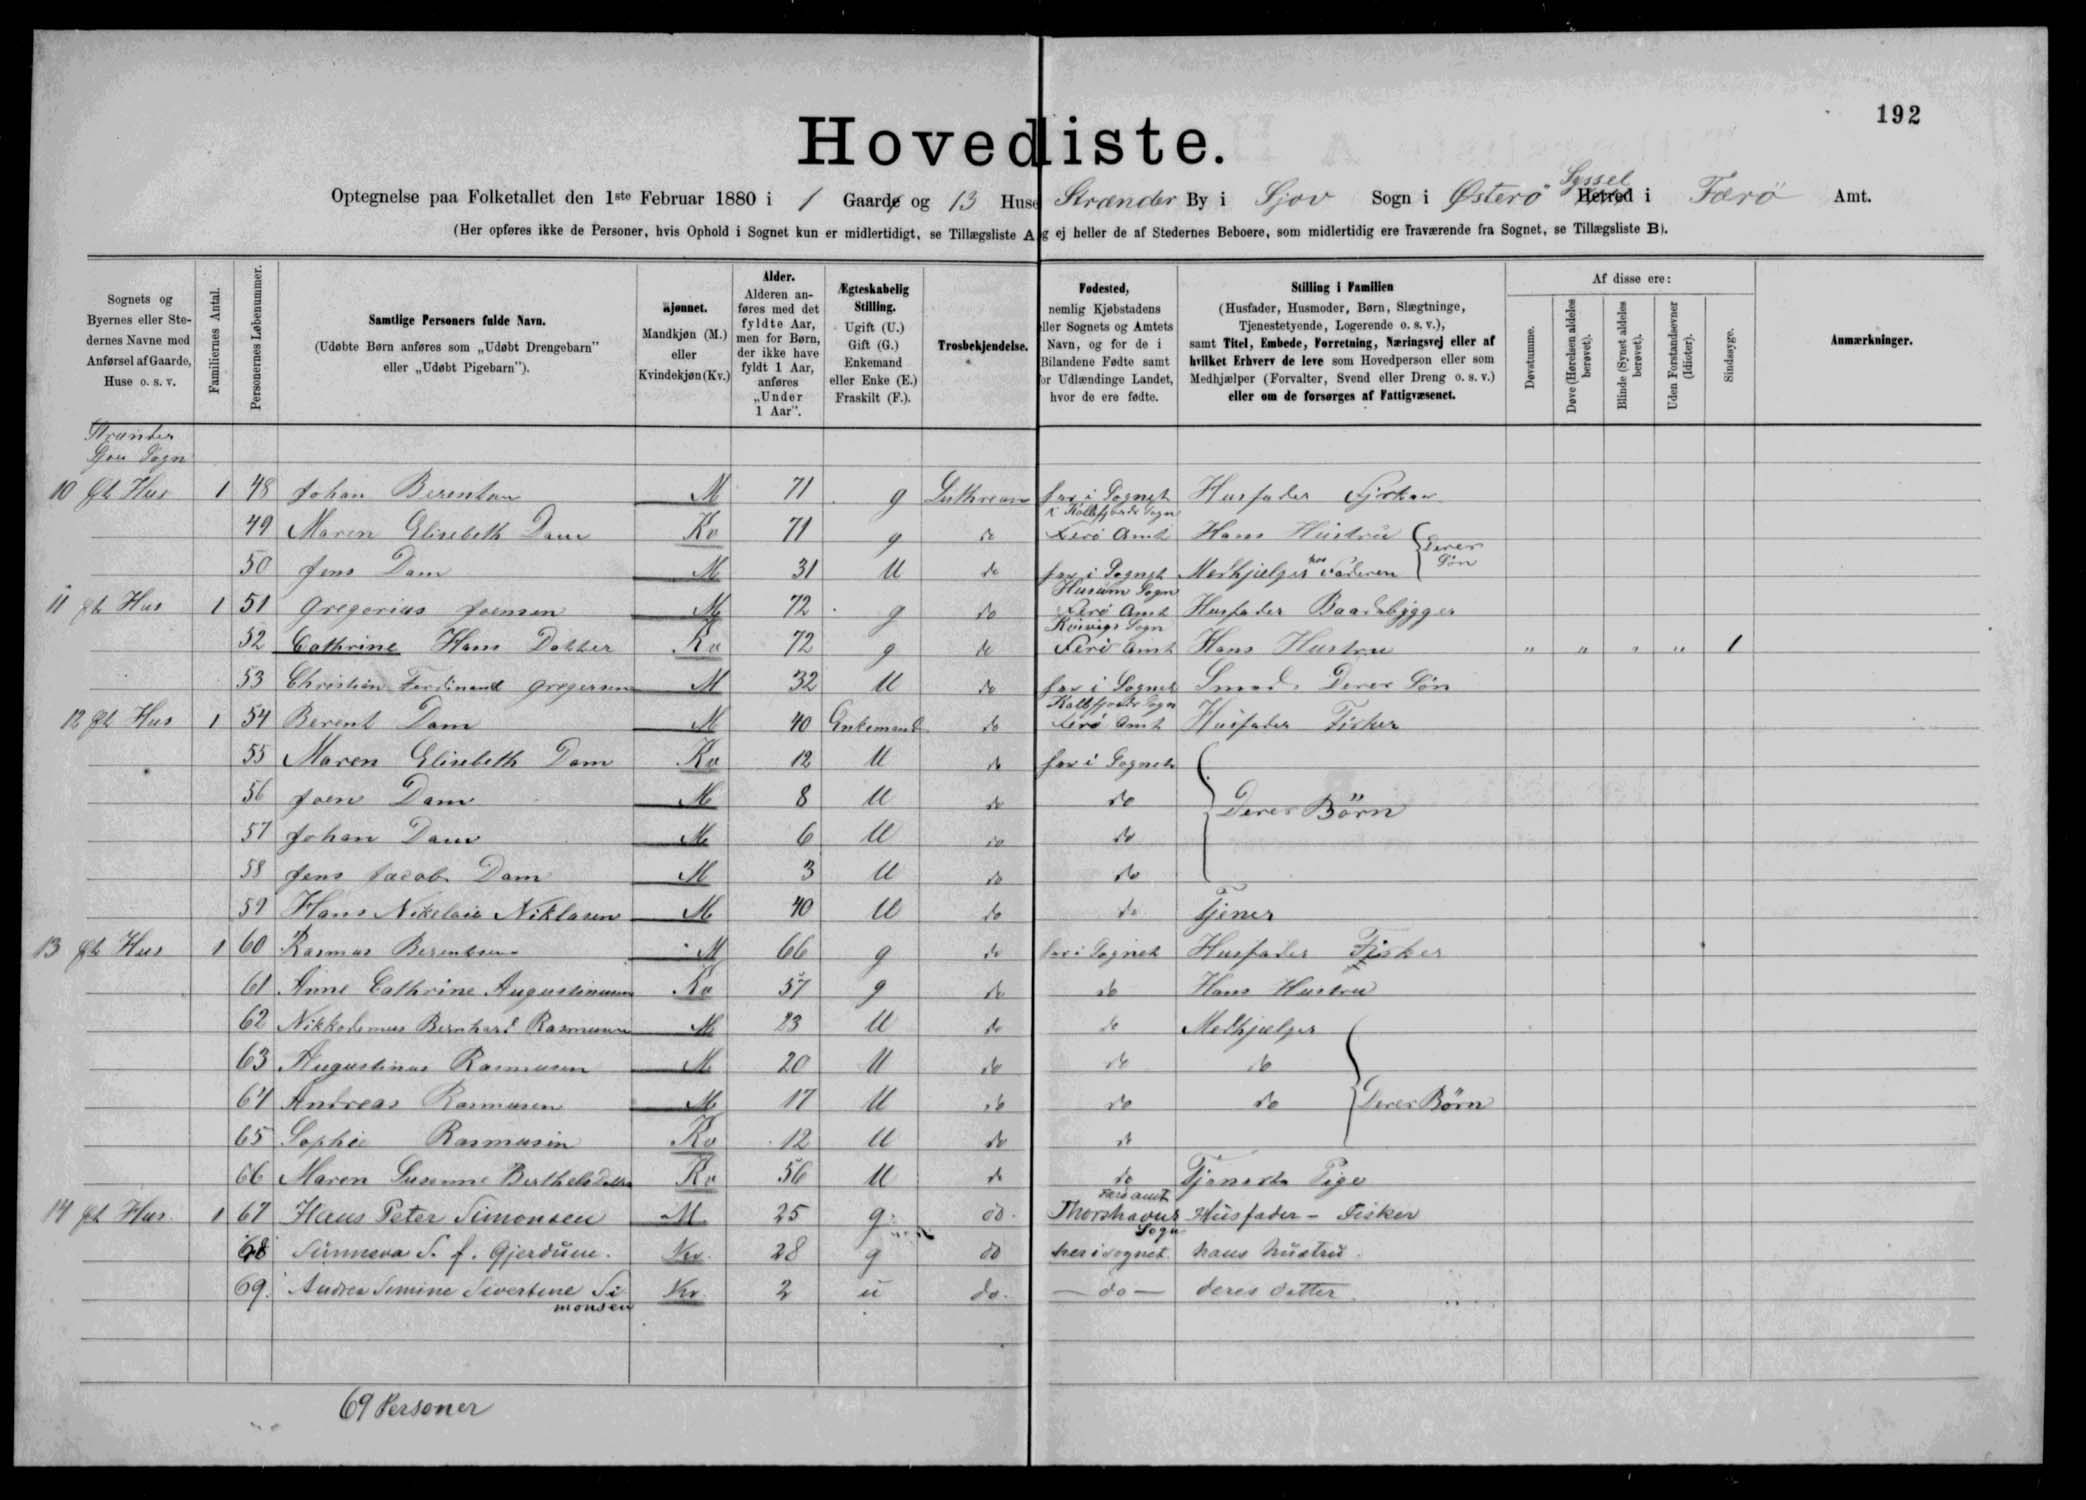 192
Hovedliste.
Optegnelse paa Folketallet den 1ste Februar 1880 i 1 Gaarde og 13 Huse Strænder By i Sjov Sogn i Østerö Syssel Herred i Færö Amt.
(Her opføres ikke de Personer, hvis Ophold i Sognet kun er midlertidigt, se Tillægsliste A og ej heller de af Stedernes Beboere, som midlertidig ere fraværende fra Sognet, se Tillægsliste B).
Sognets og Byernes eller Stedernes Navne med Anførsel af Gaarde, Huse o. s. v.
Familiernes Antal.
Personernes Løbenummer.
Samtlige Personers fulde Navn.
(Udøbte Børn anføres som „Udøbt Drengebarn” eller „Udøbt Pigebarn”).
Kjønnet.
Mandkjøn (M.) eller Kvindekjøn (Kv.)
Alder.
Alderen anføres med det fyldte Aar, men for Børn, der ikke have fyldt 1 Aar, anføres „Under 1 Aar”.
Ægteskabelig Stilling.
Ugift (U.) Gift (G.) Enkemand eller Enke (E.) Fraskilt (F.).
Trosbekjendelse.
Fødested,
nemlig Kjøbstadens eller Sognets og Amtets Navn, og for de i Bilandene Fødte samt for Udlændinge Landet, hvor de ere fødte.
Stilling i Familien
(Husfader, Husmoder, Børn, Slægtninge, Tjenestetyende, Logerende o. s. v.),
samt Titel, Embede, Forretning, Næringsvej eller af hvilket Erhverv de leve som Hovedperson eller som Medhjælper (Forvalter, Svend eller Dreng o. s. v.) eller om de forsørges af Fattigvæsenet.
Af disse ere:
Døvstumme.
Døve (Hørelsen aldeles berøvet).
Blinde (Synet aldeles berøvet).
Uden Forstandsevner (Idioter).
Sindssyge.
Anmærkninger.
Strænder
Sjov Sogn
10 Et Hus 1 48 Johan Berentsen M 71 g Luthrean her i Sognet Husfader Fisker
49 Maren Elisebeth Dam Kv 71 g do i Kollefjords Sogn Ferö Amt Hans Hustru
50 Jens Dam M 31 U do her i Sognet Medhjælper hos Faderen Deres Sön
11 Et Hus 1 51 Gregorius Joensen M 72 g do Husum Sogn Ferö Amt Husfader Baadebygger
52 Cathrine Hans Datter Kv 72 g do Kvivigs Sogn Ferö Amt Hans Hustru " " " " 1
53 Christian Ferdinand Gregersen M 32 U do her i Sognet Smed. Deres Sön
12 Et Hus 1 54 Berent Dam M 40 Enkemand do Kollefjords Sogn Ferö Amt Husfader Fisker
55 Maren Elisebeth Dam Kv 12 U do her i Sognet
56 Joen Dam M 8 U do do Deres Börn
57 Johan Dam M 6 U do do
58 Jens Jacob Dam M 3 U do do
59 Hans Nikolaie Niklasen M 40 U do do Tjener
13 Et Hus 1 60 Rasmus Berentsen M 66 g do her i Sognet Husfader Fisker
61 Anne Cathrine Augustinusen Kv 57 g do do Hans Hustru
62 Nikkodemus Bernhard Rasmusen M 23 U do do Medhjælper
63 Augustinus Rasmusen M 20 U do do do
64 Andreas Rasmusen M 17 U do do do Deres Börn
65 Sophie Rasmusen Kv 12 U do do
66 Maren Susanne Berthelsdatter Kv 56 U do do Tjeneste Pige
14 Et Hus 1 67 Hans Peter Simonsen M 25 g do Færö amt Thorshavns Sogn Husfader - Fisker
68 Sünneva S. f. Gjerdum Kv 28 g do her i sognet hans hustru
69 Andrea Simine Sivertine Si- Kv 2 u do — do — deres datter
monsen
69 Personer